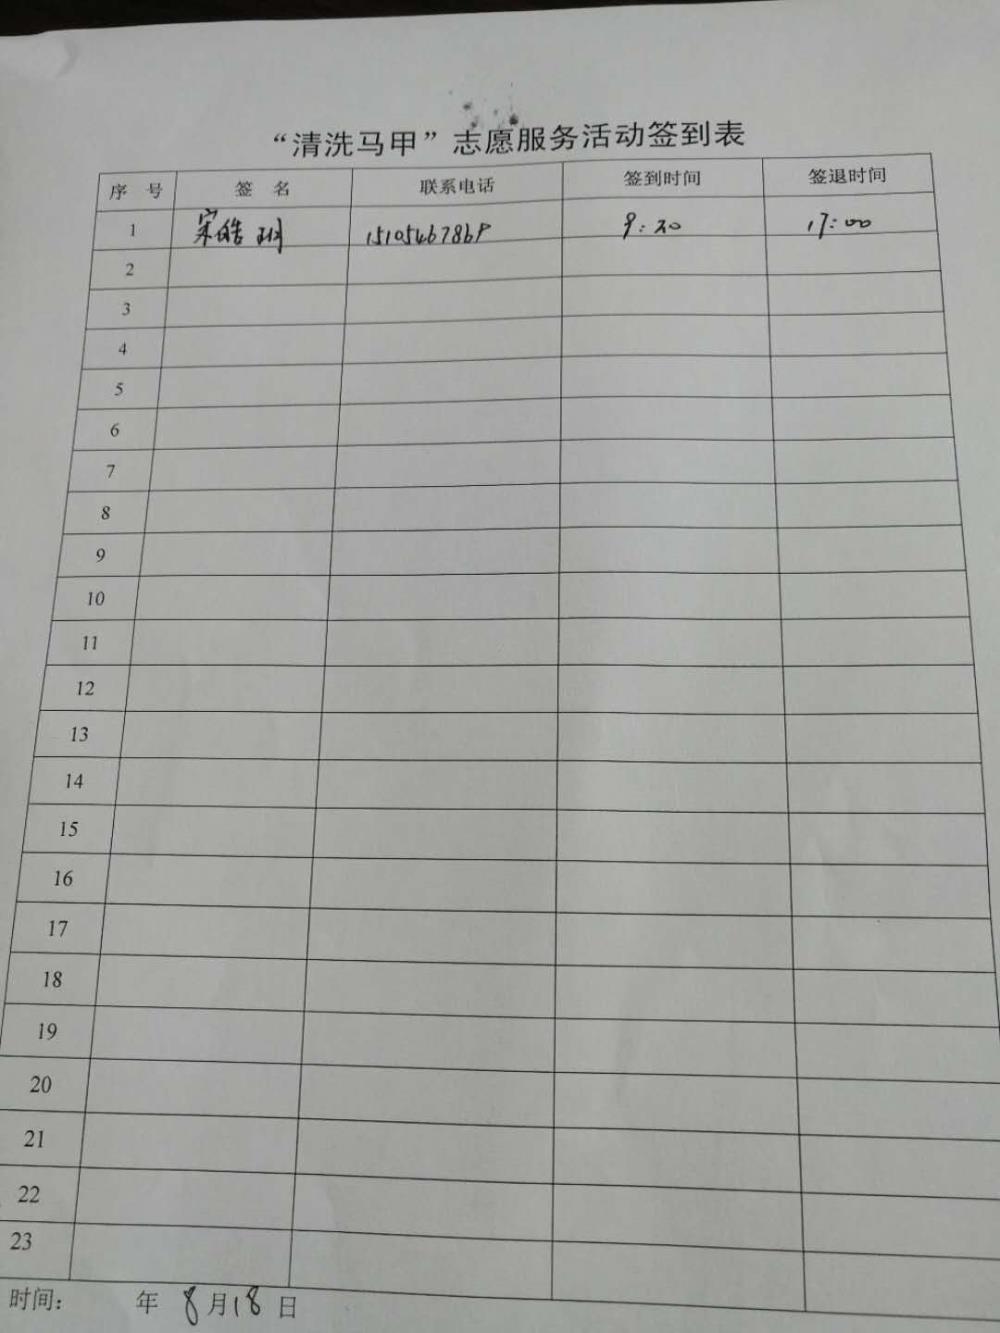 “清洗马甲”志愿服务活动签到表
序 号 签 名 联系电话 签到时间 签退时间
1 宋皓 15105467869 9:20 17:00
2
3
4
5
6
7
8
9
10
11
12
13
14
15
16
17
18
19
20
21
22
23
时间: 年 8月18日